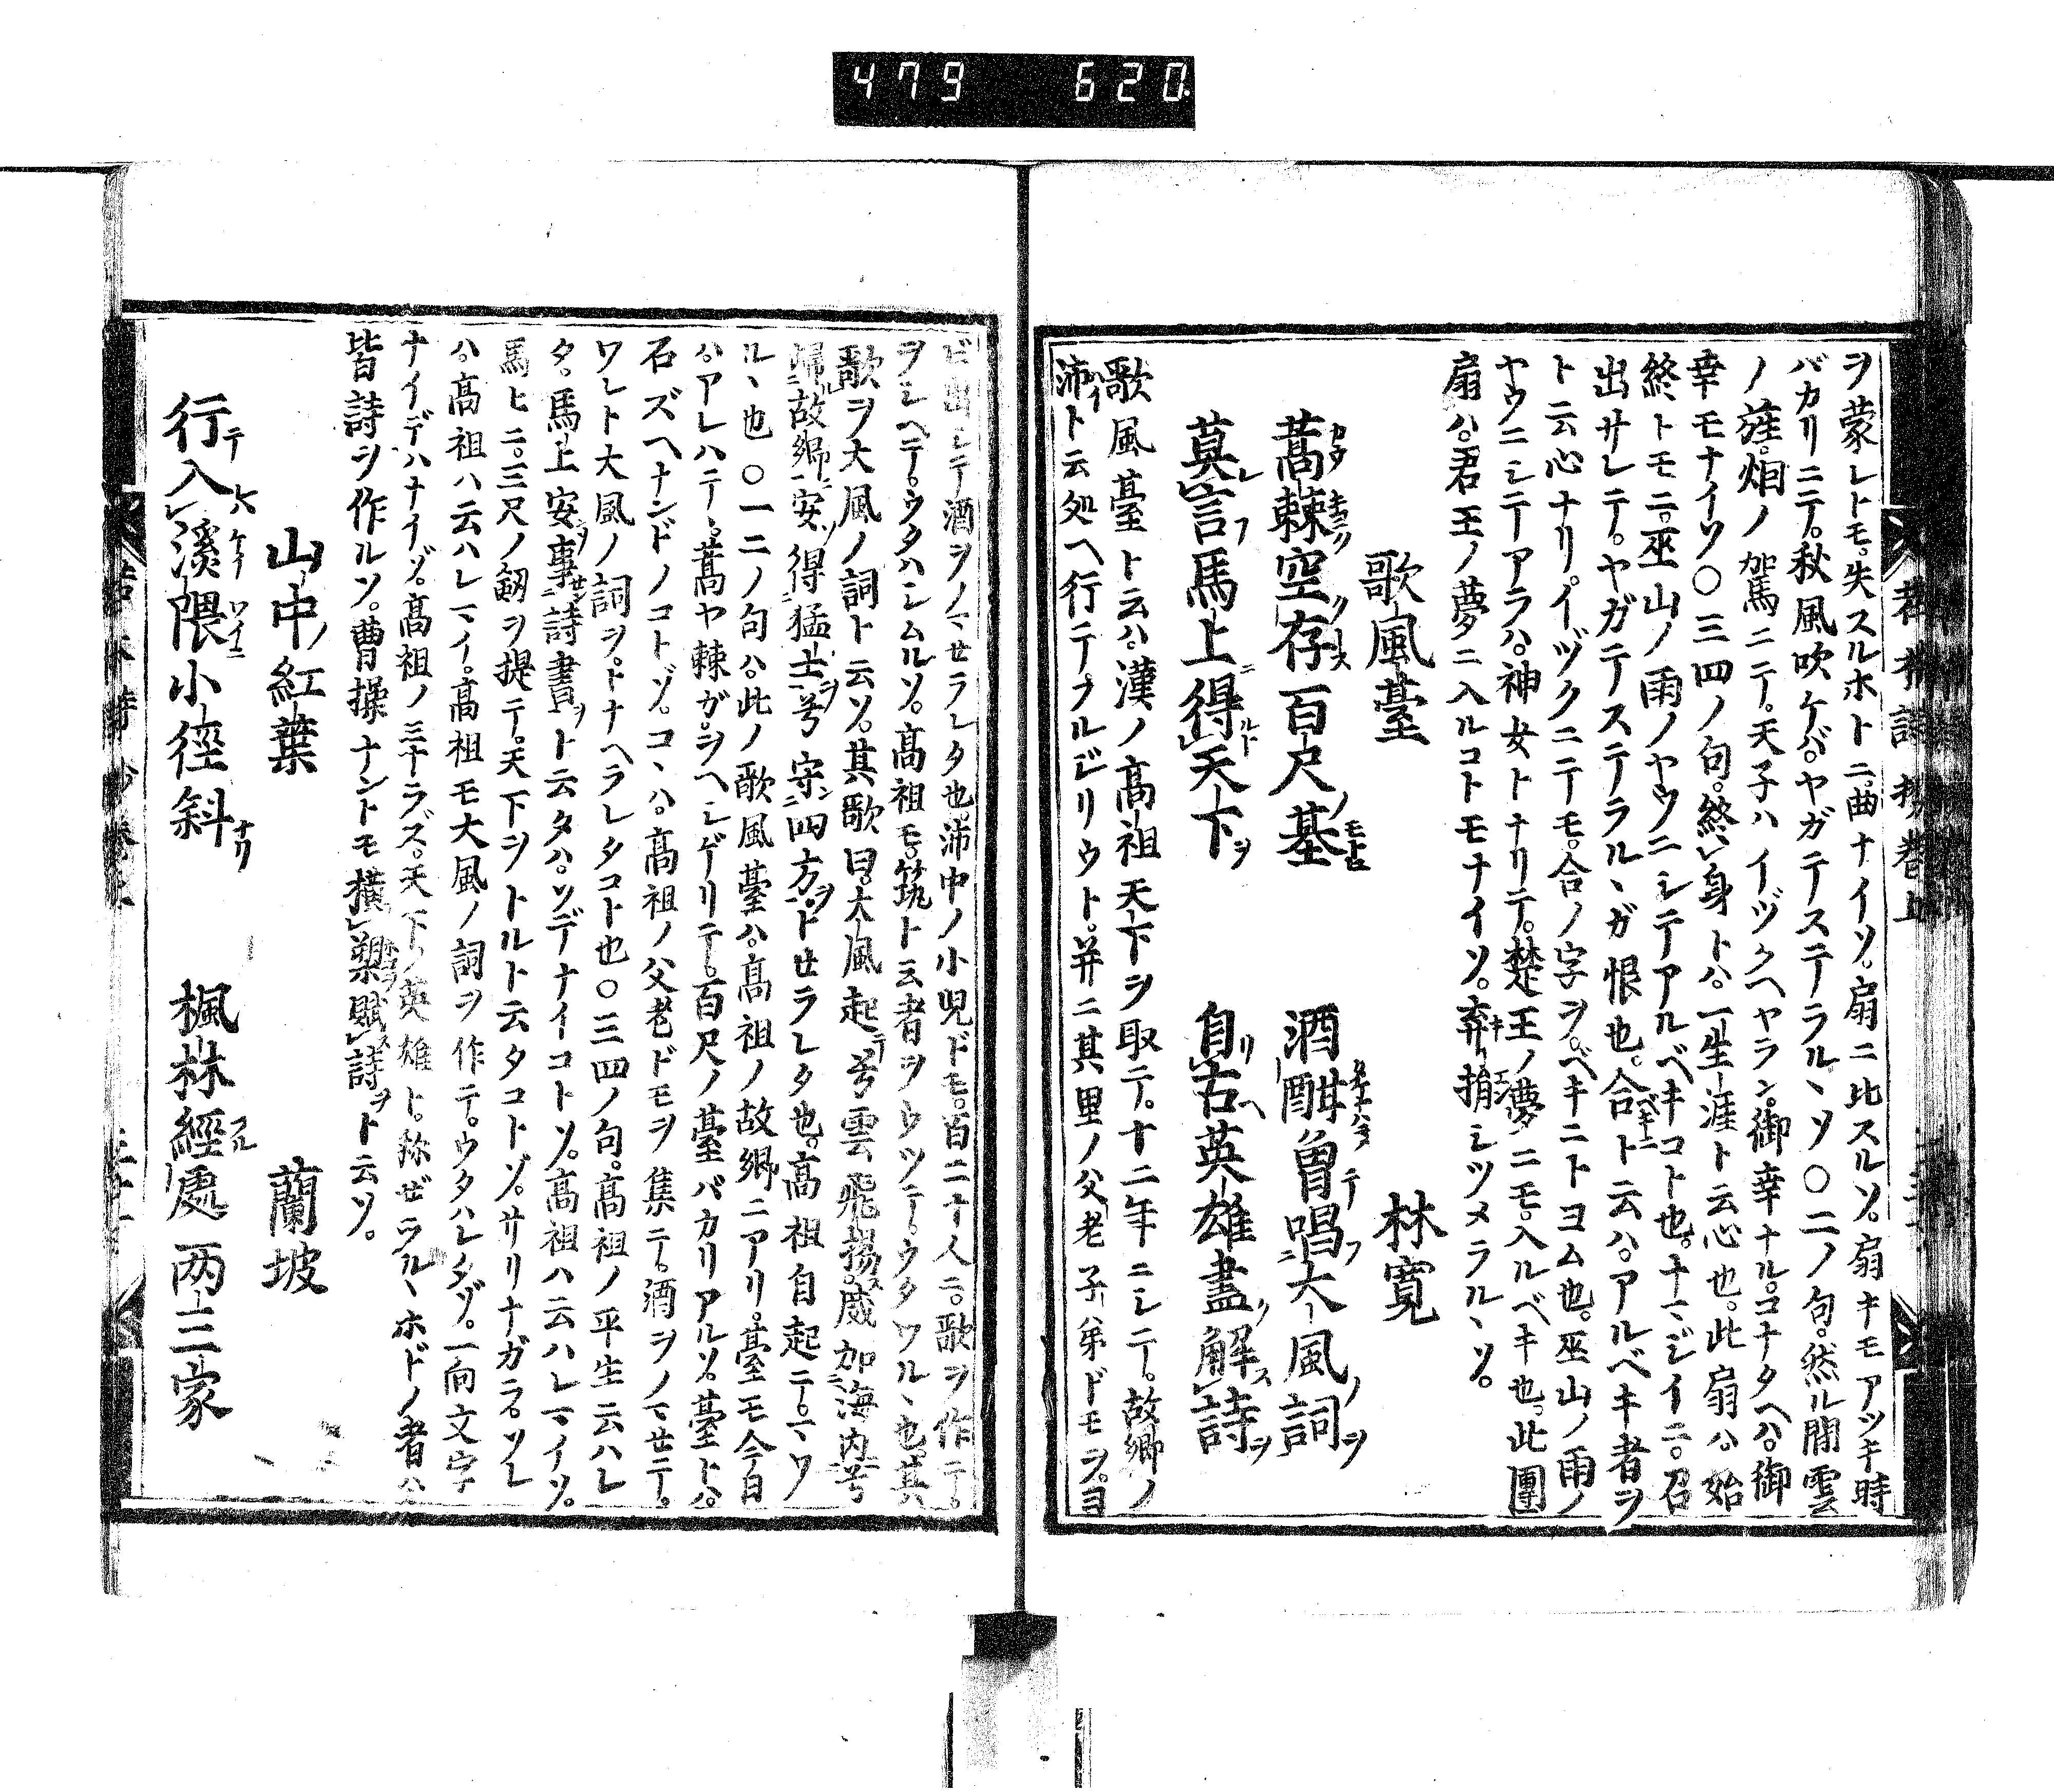 479 620
ヲ蒙レトモ。失スルホトニ。曲ナイソ。扇ニ比スルソ。扇キモアツキ時
バカリニテ。秋風吹ケバ。ヤガテステラルヽソ〇二ノ句。然ル間雲
ノ。烟ノ駕ニテ。天子ハイヅクヘヤラン。御幸ナル。コナタヘハ。御
幸モナイソ〇三四ノ句。終身トハ。一生涯ト云心也。此扇ハ。始
終トモニ。巫山ノ雨ノヤウニシテアルベキコト也。ナマジイニ。召
出サレテ。ヤガテステラルヽガ恨也。合ト云ハ。アルベキ者ヲ
ト云心ナリ。イヅクニテモ。合ノ字ヲ。ベキニトヨム也。巫山ノ雨ノ
ヤウニシテアラハ。神女トナリテ。楚王ノ夢ニモ。入ルベキ也。此團
扇ハ。君王ノ夢ニ入ルコトモナイソ。弃捐シツメラルヽソ。
歌風臺 林寛
蒿棘空存百尺基 酒酣曽唱大風詞
莫言馬上得天下 自古英雄盡解詩
歌風臺ト云ハ。漢ノ高祖天下ヲ取テ。十二年ニシテ。故郷ノ
沛ト云処ヘ行テ。フルビリウト。并ニ其里ノ父老子弟ドモヲ。ヨ
ビ出シテ酒ヲノマセラレタ也。沛中ノ小児ドモ。百二十人ニ。歌ヲ作テ。
ヲシヘテ。ウタハシムルソ。高祖モ。筑ト云者ヲウツテ。ウタワルヽ也。其
歌ヲ大風ノ詞ト云ソ。其歌曰。大風起兮雲飛揚。威加海内兮
歸故郷。安得猛士兮守四方。トセラレタ也。高祖自起テ。マワ
ルヽ也〇一二ノ句ハ。此ノ歌風臺ハ。高祖ノ故郷ニアリ。臺モ今日
ハ。アレハテヽ。蒿ヤ棘ガ。ヲヘシゲリテ。百尺ノ臺バカリアルソ。臺トハ。
石ズヘナンドノコトゾ。コヽハ。高祖ノ父老ドモヲ集テ。酒ヲノマセテ。
ワレト大風ノ詞ヲ。トナヘラレタコト也〇三四ノ句。高祖ノ平生云ハレ
タ。馬上安事詩書ト云タハ。ソデナイコトソ。高祖ハ云ハレマイソ。
馬ヒニ。三尺ノ劒ヲ提テ。天下ヲトルト云タコトゾ。サリナガラ。ソレ
ハ。高祖ハ云ハレマイ。高祖モ大風ノ詞ヲ作テ。ウタハレタゾ。一向文字
ナイデハナイゾ。高祖ノミナラズ。天下ノ英雄ト。称ゼラルヽホドノ者ハ。
皆詩ヲ作ルソ。曹操ナントモ横槊賦詩ト云ソ。
山中紅葉 蘭坡
行入溪隈小徑斜 楓林經處両三家